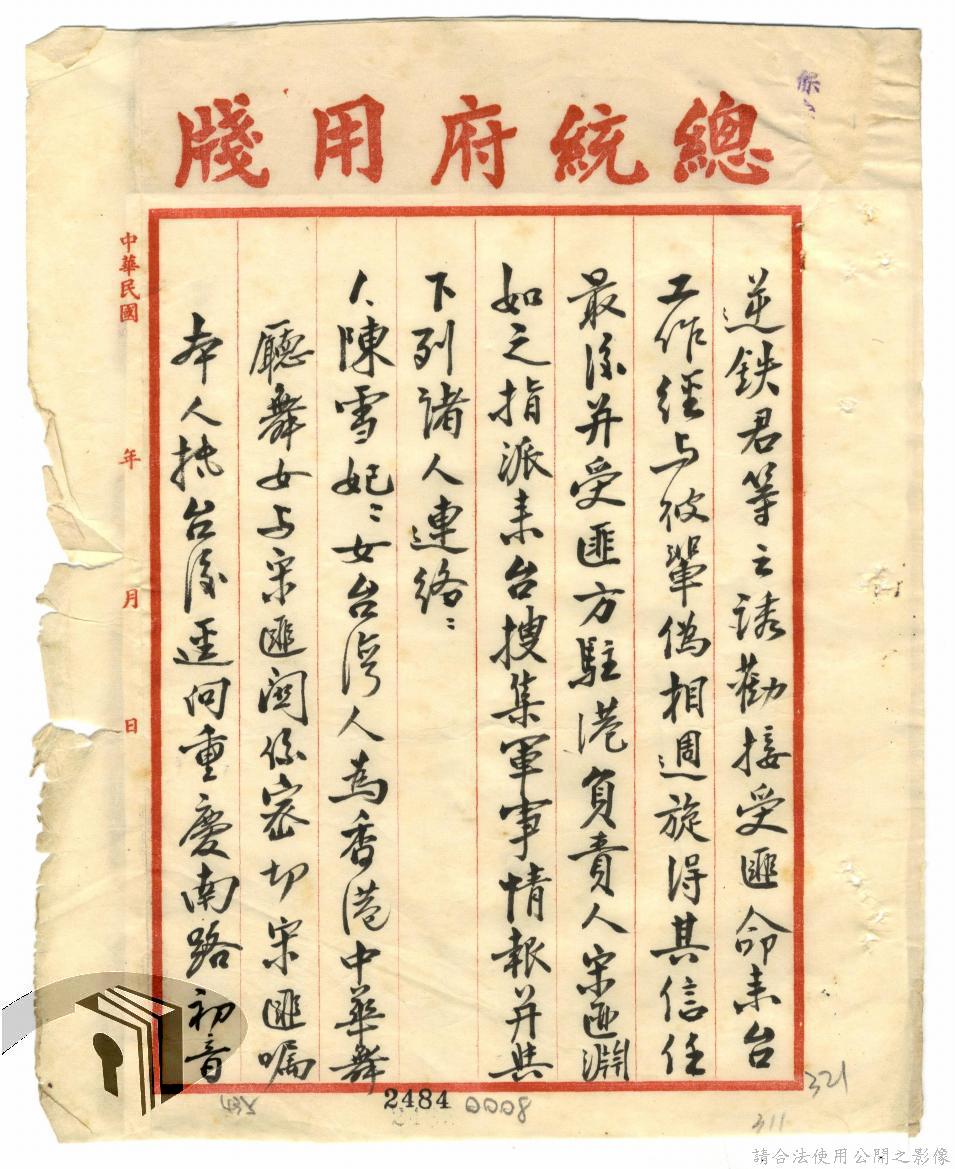 總統府用牋
逆鉄君等之誘勸接受匪命来台
工作經与彼輩偽相週旋得其信任
最後并受匪方駐港負責人宋匪淵
如之指派来台搜集軍事情報并與
下列諸人連絡：
1、陳雪妃：女台湾人為香港中華舞
廳舞女与宋匪関係密切宋匪囑
本人抵台後逕向重慶南路初音
中華民國 年 月 日
2484 0008
321
311
請合法使用公開之影像